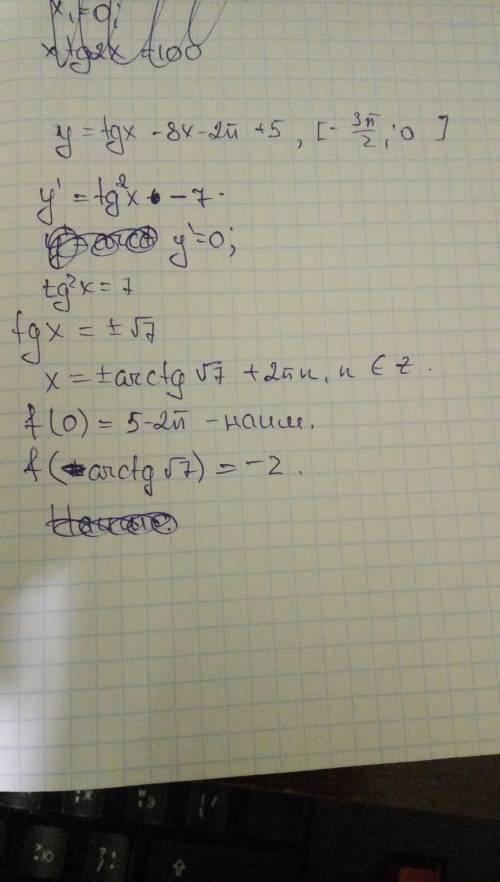 x₁=0;
x tg2x =100
y = tgx - 8x - 2π + 5, [- 3π/2 ; 0 ]
y' = tg²x - 7.
y'=0;
tg²x = 7
tgx = ±√7
x = ±arctg √7 + 2πn, n ∈ z.
f(0) = 5-2π - наим.
f(-arctg √7) = -2.